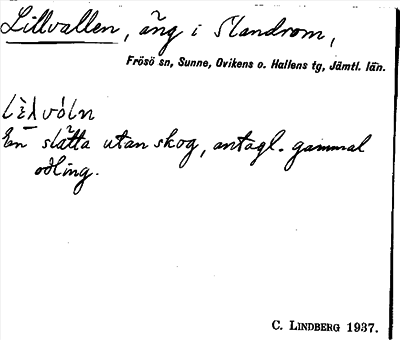 Lillvallen, äng i Slandrom,
Frösö sn, Sunne, Ovikens o. Hallens tg, Jämtl. län.
En slätta utan skog, antagl. gammal
odling.
C. LINDBERG 1937.